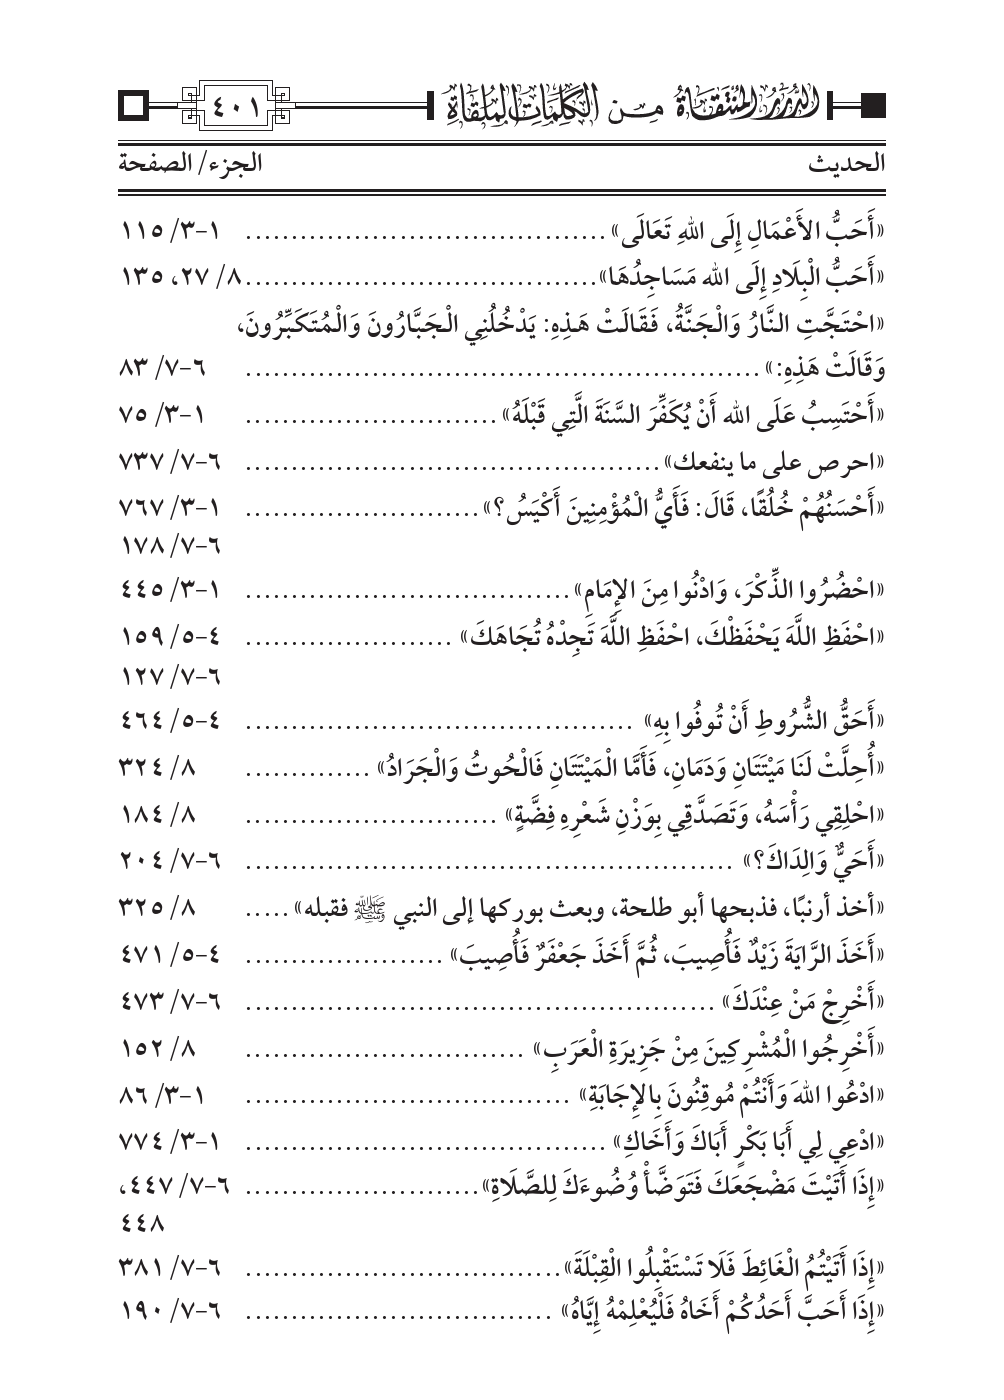 الدُّرَرُ المُنْتَقَاةُ مِن الكَلِمَاتِ المُلْقَاةِ ٤٠١
الحديث الجزء/ الصفحة
«أَحَبُّ الأَعْمَالِ إِلَى اللهِ تَعَالَى» ....................................... ١-٣/ ١١٥
«أَحَبُّ الْبِلَادِ إِلَى الله مَسَاجِدُهَا» ....................................... ٨/ ٢٧، ١٣٥
«احْتَجَّتِ النَّارُ وَالْجَنَّةُ، فَقَالَتْ هَذِهِ: يَدْخُلُنِي الْجَبَّارُونَ وَالْمُتَكَبِّرُونَ،
وَقَالَتْ هَذِهِ:» ....................................................... ٦-٧/ ٨٣
«أَحْتَسِبُ عَلَى الله أَنْ يُكَفِّرَ السَّنَةَ الَّتِي قَبْلَهُ» ........................... ١-٣/ ٧٥
«احرص على ما ينفعك» ............................................. ٦-٧/ ٧٣٧
«أَحْسَنُهُمْ خُلُقًا، قَالَ: فَأَيُّ الْمُؤْمِنِينَ أَكْيَسُ؟» ......................... ١-٣/ ٧٦٧
٦-٧/ ١٧٨
«احْضُرُوا الذِّكْرَ، وَادْنُوا مِنَ الإِمَامِ» ................................... ١-٣/ ٤٤٥
«احْفَظِ اللَّهَ يَحْفَظْكَ، احْفَظِ اللَّهَ تَجِدْهُ تُجَاهَكَ» ...................... ٤-٥/ ١٥٩
٦-٧/ ١٢٧
«أَحَقُّ الشُّرُوطِ أَنْ تُوفُوا بِهِ» .......................................... ٤-٥/ ٤٦٤
«أُحِلَّتْ لَنَا مَيْتَتَانِ وَدَمَانِ، فَأَمَّا الْمَيْتَتَانِ فَالْحُوتُ وَالْجَرَادُ» .............. ٨/ ٣٢٤
«احْلِقِي رَأْسَهُ، وَتَصَدَّقِي بِوَزْنِ شَعْرِهِ فِضَّةٍ» ........................... ٨/ ١٨٤
«أَحَيٌّ وَالِدَاكَ؟» .................................................... ٦-٧/ ٢٠٤
«أخذ أرنبًا، فذبحها أبو طلحة، وبعث بوركها إلى النبي ﷺ فقبله» ..... ٨/ ٣٢٥
«أَخَذَ الرَّايَةَ زَيْدٌ فَأُصِيبَ، ثُمَّ أَخَذَ جَعْفَرٌ فَأُصِيبَ» ..................... ٤-٥/ ٤٧١
«أَخْرِجْ مَنْ عِنْدَكَ» .................................................. ٦-٧/ ٤٧٣
«أَخْرِجُوا الْمُشْرِكِينَ مِنْ جَزِيرَةِ الْعَرَبِ» .............................. ٨/ ١٥٢
«ادْعُوا اللهَ وَأَنْتُمْ مُوقِنُونَ بِالإِجَابَةِ» ................................... ١-٣/ ٨٦
«ادْعِي لِي أَبَا بَكْرٍ أَبَاكَ وَأَخَاكِ» ....................................... ١-٣/ ٧٧٤
«إِذَا أَتَيْتَ مَضْجَعَكَ فَتَوَضَّأْ وُضُوءَكَ لِلصَّلَاةِ» ......................... ٦-٧/ ٤٤٧،
٤٤٨
«إِذَا أَتَيْتُمُ الْغَائِطَ فَلَا تَسْتَقْبِلُوا الْقِبْلَةَ» .................................. ٦-٧/ ٣٨١
«إِذَا أَحَبَّ أَحَدُكُمْ أَخَاهُ فَلْيُعْلِمْهُ إِيَّاهُ» ................................. ٦-٧/ ١٩٠